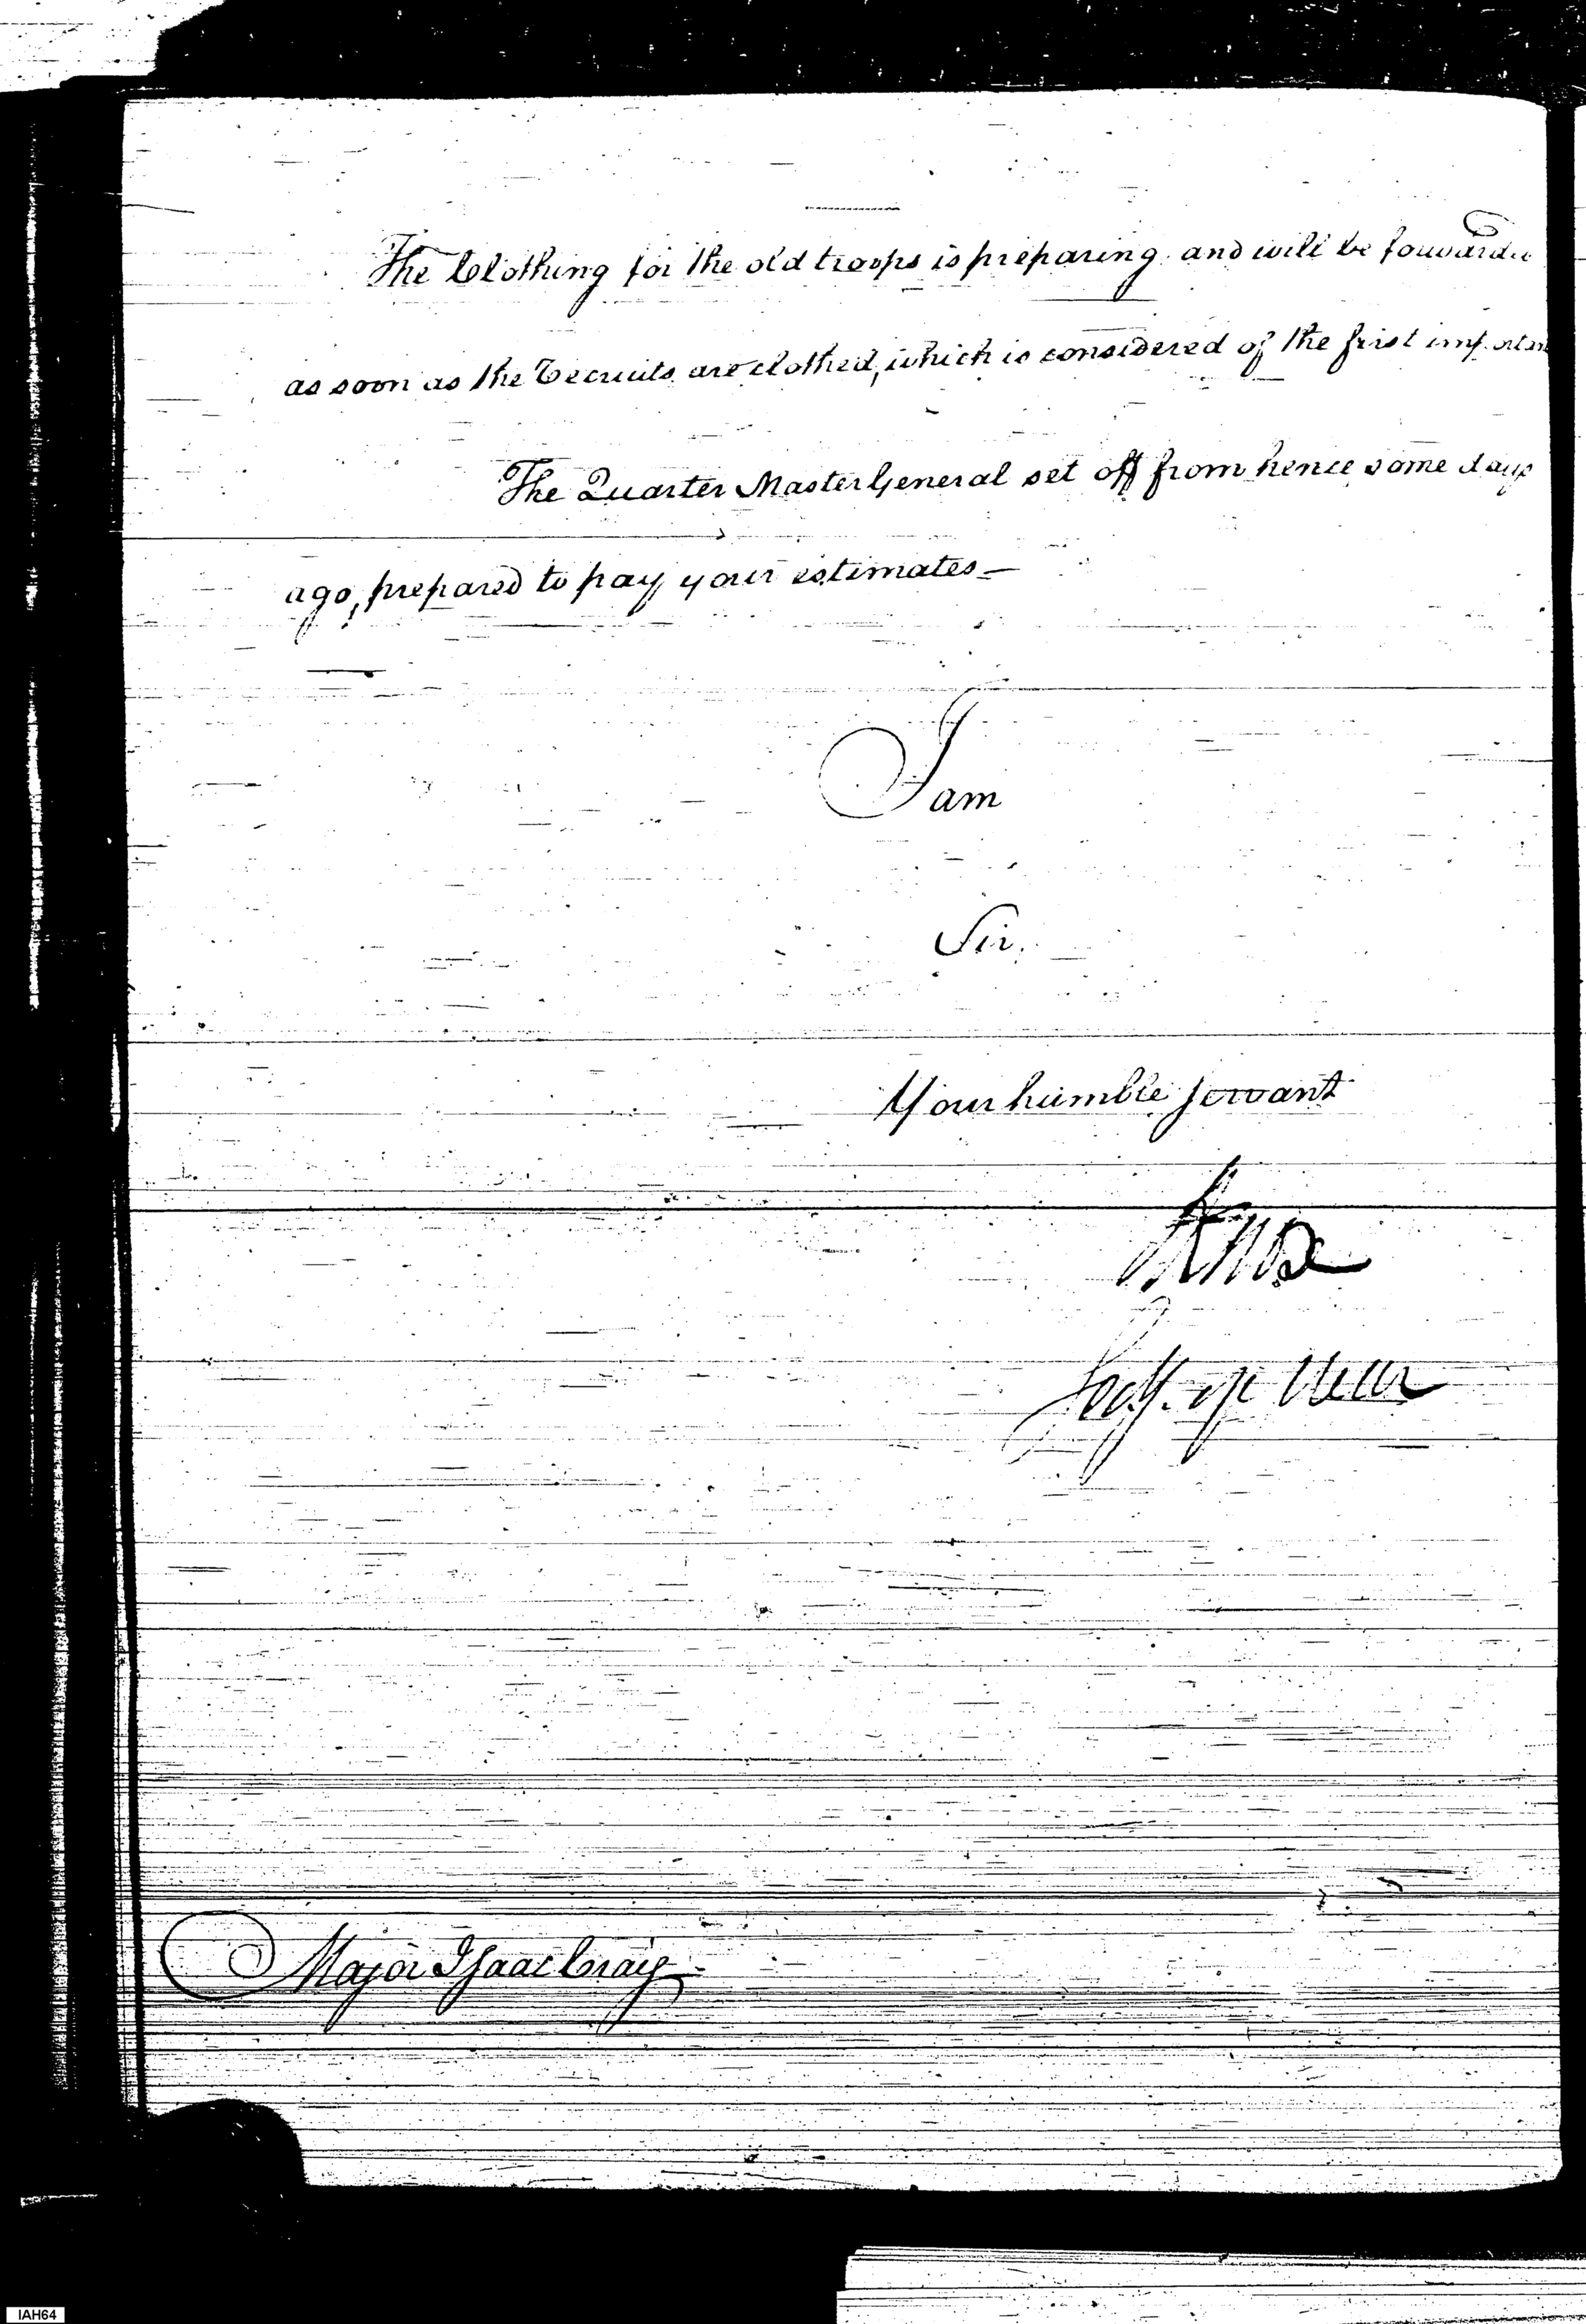 The Clothing for the old troops is preparing and will be forwarded
as soon as the Recruits are clothed, which is considered of the first importan
The Quarter Master General set off from hence some days
ago, prepared to pay your estimates_
I am
Sir.
Your humble servant
HKnox
Secy. of War
Major Isaac Craig
IAH64